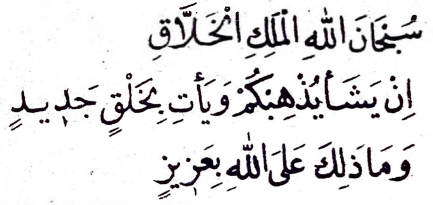 سُبْحَانَ اللهِ الْمَلِكِ الْخَلَّاقِ
اِنْ يَشَأْ يُذْهِبْكُمْ وَيَأْتِ بِخَلْقٍ جَدِيدٍ
وَمَا ذَلِكَ عَلَى اللهِ بِعَزِيزٍ